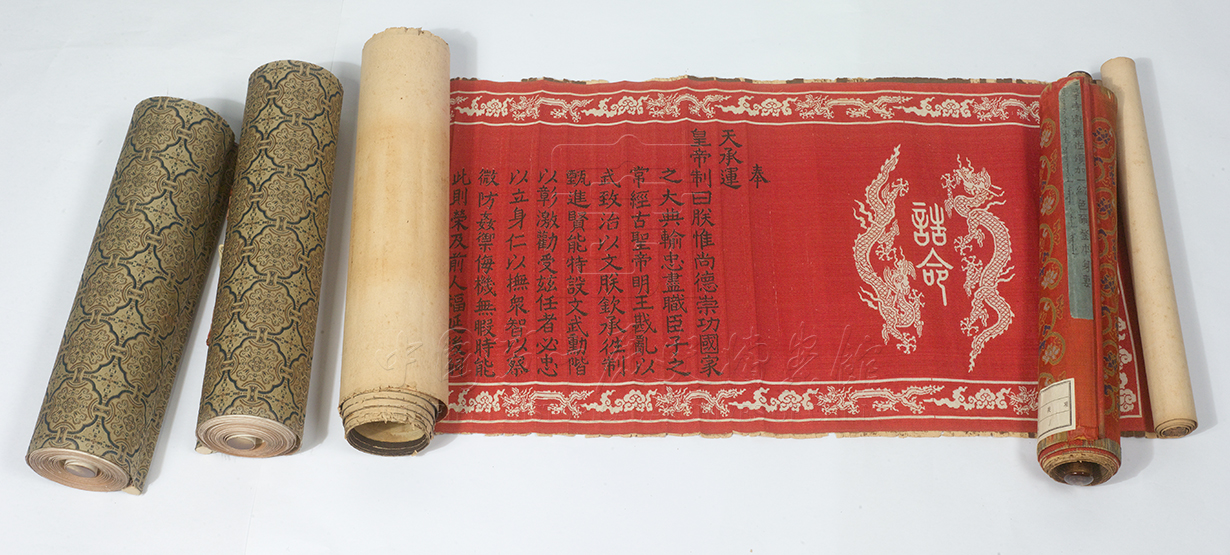 誥命
奉
天承運
皇帝制曰朕惟尚德崇功國家
之大典輸忠盡職臣子之
常經古聖帝明王戡亂以
武致治以文朕欽承往制
甄進賢能特設文武勳階
以彰激勸受茲任者必忠
以立身仁以撫衆智以察
微防姦禦侮機無暇時能
此則榮及前人福延後嗣